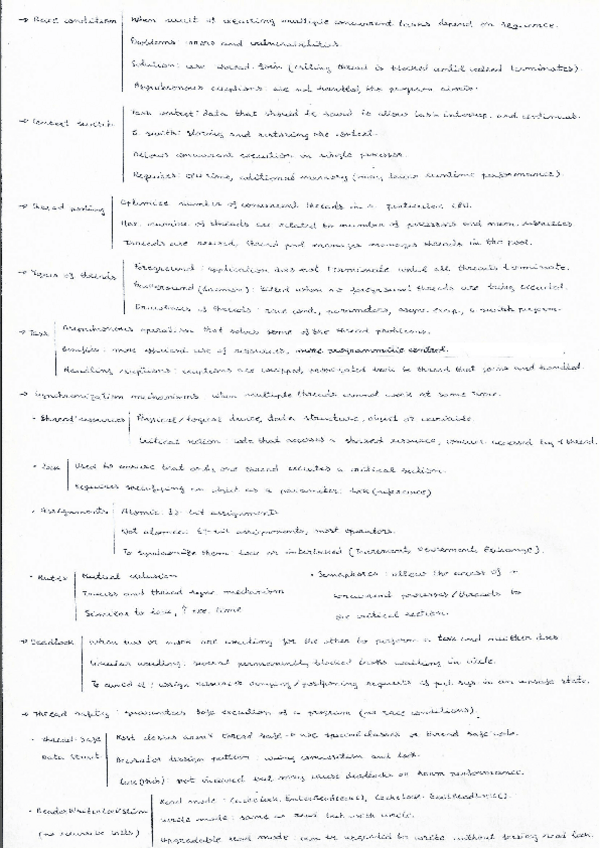 → Race condition
When result of executing multiple concurrent tasks depend on sequence.
Problems: errors and vulnerabilities.
Solution: use thread.Join (calling thread is blocked until called terminates).
Asynchronous exceptions: are not handled, the program
→ Context switch
Task context: data that should be saved to allow task interrup. and continuat.
C. switch: storing and restoring the context.
Allows concurrent execution in single processor.
Requires: CPU time, additional memory (may lower runtime performance).
→ Thread pooling
Optimize number of concurrent threads in a particular CPU.
Max. number of threads are related to number of processors and mem. addresses
Threads are reused, thread pool manager manages threads in the pool.
→ Types of threads
Foreground: application does not terminate until all threads terminate.
Background (daemon): killed when no foreground threads are being executed.
Drawbacks of threads: race cond., parameters, async. excep., c. switch perform.
→ Task
Asynchronous operation that solves some of the thread problems.
Benefits: more efficient use of resources, more programmatic control.
Handling exceptions: exceptions are wrapped, propagated back to thread that joins and handled.
→ Synchronization mechanisms: when multiple threads cannot work at same time.
· Shared resources
Physical/logical device, data structure, object or variable.
Critical section: code that accesses a shared resource, accessed by 1 thread.
· Lock
Used to ensure that only one thread executes a critical section.
Requires specifying an object as a parameter: lock(reference)
· Assignments
Atomic: 32-bit assignments
Not atomic: 64-bit assignments, most operators.
To synchronize them: lock or interlocked (Increment, Decrement, Exchange).
· Mutex
Mutual exclusion
Process and thread sync mechanism
Similar to lock, time
· Semaphores: allow the access of
concurrent processes/threads to
one critical section.
→ Deadlock
When two or more are waiting for the other to perform a task and neither does.
Circular waiting: several permanently blocked tasks waiting in circle.
To avoid it: assign resources denying/postponing requests if put sys in an unsafe state.
→ Thread safety: guarantees safe execution of a program (no race conditions).
· Thread-safe
Data Struct
Most classes aren't thread safe → use special classes or thread safe code.
Decorator design pattern: using composition and lock.
lock(this) not advised bec. may cause deadlocks or harm performance.
· ReaderWriterLockSlim
(no recursive locks)
Read mode: EnterReadLock(), ExitReadLock().
Write mode: same as read but with write.
Upgradable read mode: can be upgraded to write without freeing read lock.